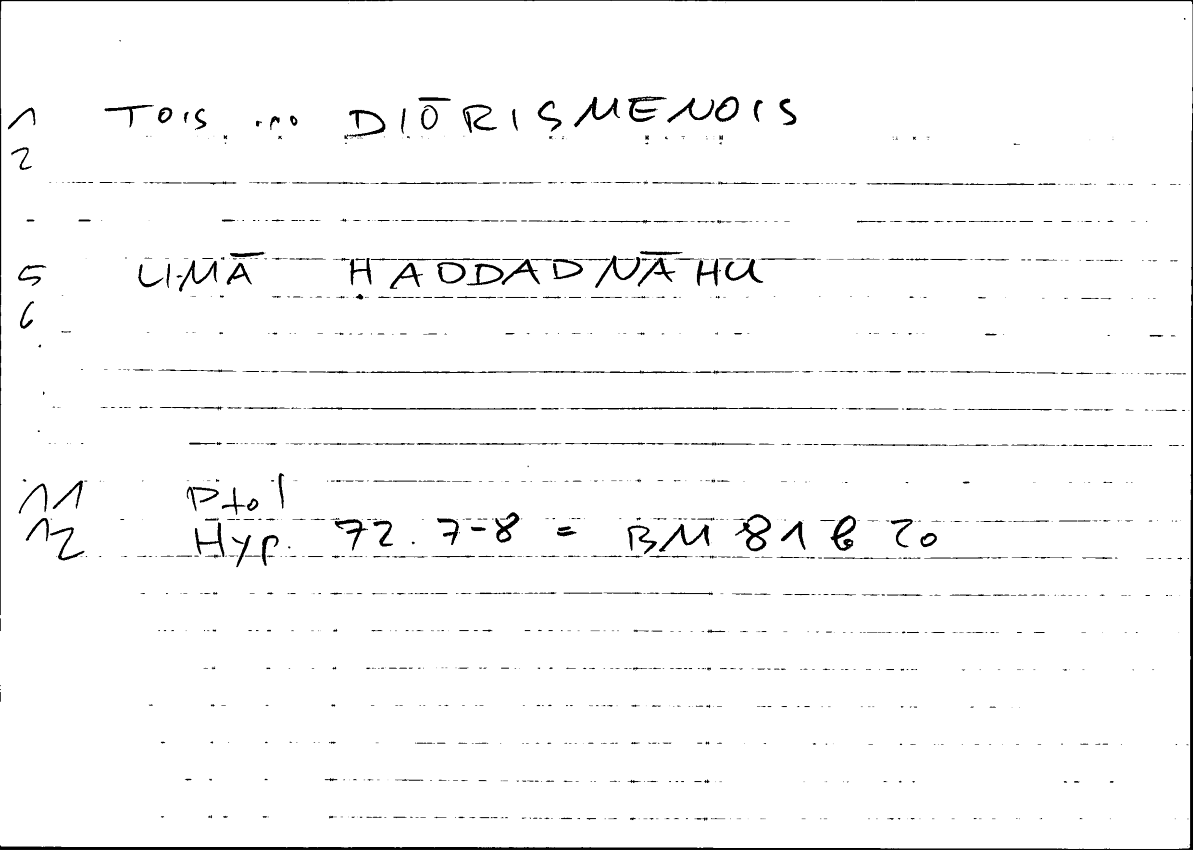 1 TOIS ... DIŌRISMENOIS
2
5 LIMĀ HADDADNĀHU
6
11 Ptol
12 Hyp. 72.7-8 = BM 81 b 20